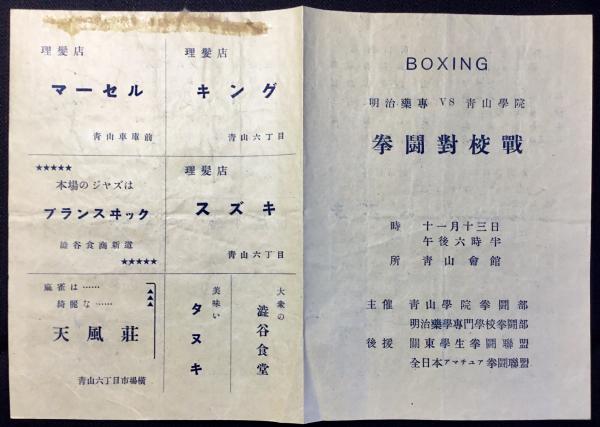 BOXING
明治藥專 VS 青山學院
拳鬪對校戰
時 十一月十三日
午後六時半
所 青山會館
主催 青山學院拳鬪部
明治藥學專門學校拳鬪部
後援 關東學生拳鬪聯盟
全日本アマチユア拳鬪聯盟
理髮店
キング
青山六丁目
理髮店
マーセル
青山車庫前
理髮店
スズキ
青山六丁目
★★★★★
本場のジヤズは
ブランスヰック
澁谷食商新道
★★★★★
大衆の
澁谷食堂
美味い
タヌキ
麻雀は……
綺麗な……
天風莊
青山六丁目市場橫